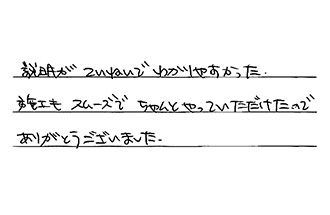 説明が ていねいで わかりやすかった.
施工も スムーズで ちゃんとやっていただけたので
ありがとうございました.